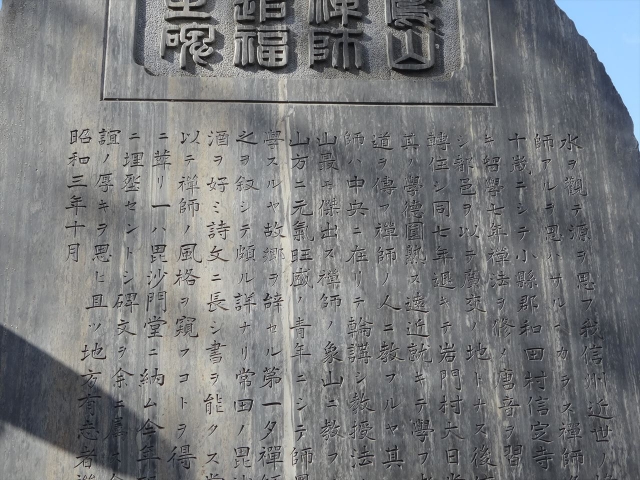 鳳山
禅師
追福
里碗
水ヲ觀テ源ヲ思フ我信州近世ノ
師アルヲ思ハサルヘカラス禪師
十歳ニシテ小縣郡和田村信定寺
キ留學七年禪法ヲ修メ唐音ヲ習
シ都區ヲ以テ爲交ノ地トナス後
轉住シ同七年退キテ岩門村大日堂
其ノ學德圓熟ス遠近就キテ學フ
道ヲ傳フ禪師ノ人ニ教フルヤ其
師ハ中央ニ在リテ輪講シ教授法
山最モ傑出ス禪師ノ象山ニ教フ
山方ニ元氣旺盛ノ青年ニシテ師
學スルヤ故郷ヲ辭セル第一夕禪師
之ヲ叙シテ頗ル詳ナリ常田ノ毘沙
酒ヲ好ミ詩文ニ長シ書ヲ能クス
以テ禪師ノ風格ヲ窺フコトヲ得
ニ葬リ一ハ毘沙門堂ニ納ム今年
ニ埋壓セントシ碑文ヲ余ニ
誼ノ厚キヲ思ヒ且ツ地方有志者
昭和三年十月